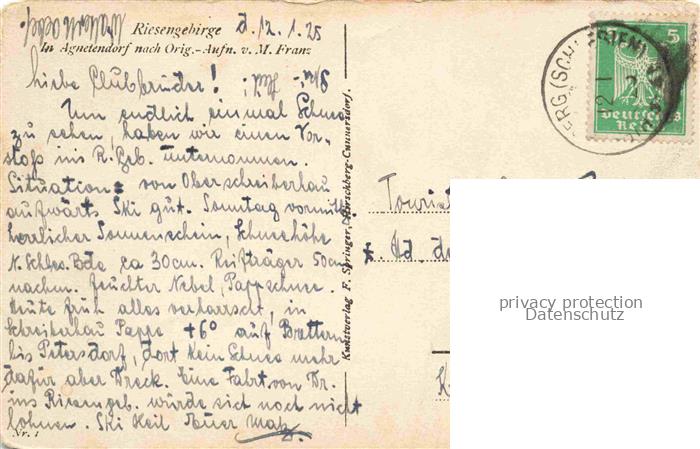 Riesengebirge d. 12. 1. 25
In Agnetendorf nach Orig.-Aufn. v. M. Franz
Liebe Clubbrüder!
Um endlich einmal Schnee
zu sehen, haben wir einen Vor-
stoß ins R. Geb. unternommen.
Situation: von Oberschreiberhau
aufwärts Ski gut. Sonntag vormitt.
herrlicher Sonnenschein, Schneehöhe
N. Schles. Bde ca 30cm. Reifträger 50cm
nachm. feuchter Nebel, Pappschnee.
Heute früh alles verharrscht, in
Schreiberhau Pappe +6° auf Brettern
bis Petersdorf, dort kein Schnee mehr
dafür aber Dreck. Eine Fahrt von Dr.
ins Riesengeb. würde sich noch nicht
lohnen. Ski Heil Euer
Nr. 1
Kunstverlag F. Springer, Hirschberg-Cunnersdorf.
5
Deutsches
Reich
BERG (SCHLESIEN)
Tourist
privacy protection
Datenschutz